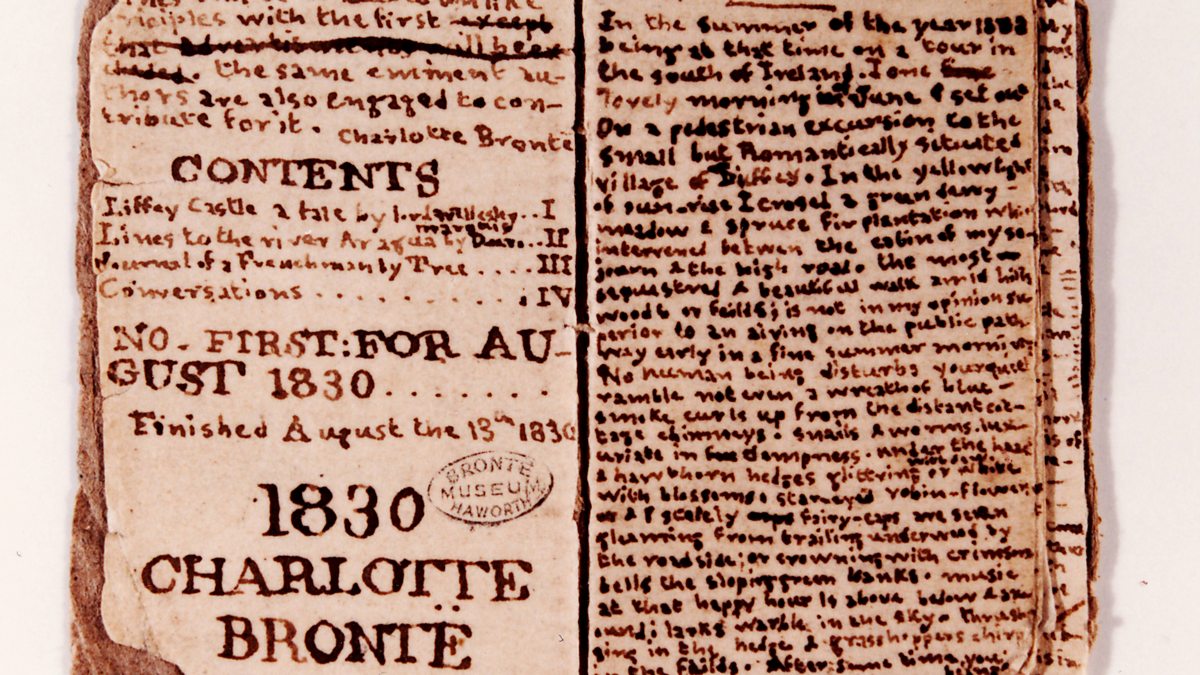 principles with the first except
that advertisements will be ex
cluded. the same eminent au-
thors are also engaged to con-
tribute for it. Charlotte Brontë
CONTENTS
Liffey Castle a tale by lord Wellesley..I
marquis
Lines to the river Aragua by Douro...II
Journal of a Frenchman by Tree....III
Conversations..........IV
NO. FIRST: FOR AU-
GUST 1830.......
Finished August the 13th 1830
BRONTË
MUSEUM
HAWORTH
1830
CHARLOTTE
BRONTË
In the summer of the year
being at that time on a tour in
the south of Ireland. I one
lovely morning in June I set out
On a pedestrian excursion to the
small but Romantically situated
village of Diffey. In the yellow light
of sun-rise I crosed a green dewy
meadow & spruce fir plantation
intervened betwen the cabin of my so-
journ & the high road. the most
sequestred & beautiful walk amid high
woods or feilds; is not in my opinion su
perior to an airing on the public path
way early in a fine summer morning
No human being disturbs your quiet
ramble not even a wreath of blue
smoke curls up from the distant cot-
tage chimneys. snails & worms lux
uriate in dampness. under the
hawthorn hedges glittering or white
with blossoms. stareyed robin-flowers
and scalely cups fairy-caps are seen
gleaming from trailing underwood by
the roadside; or crowning with crimson
bells the sloping green banks. music
at that happy hour is above below & ar
ound; larks warble in the sky. thrushes
sing in the hedge & grasshoppers chirp
in the feilds. After some time you
being